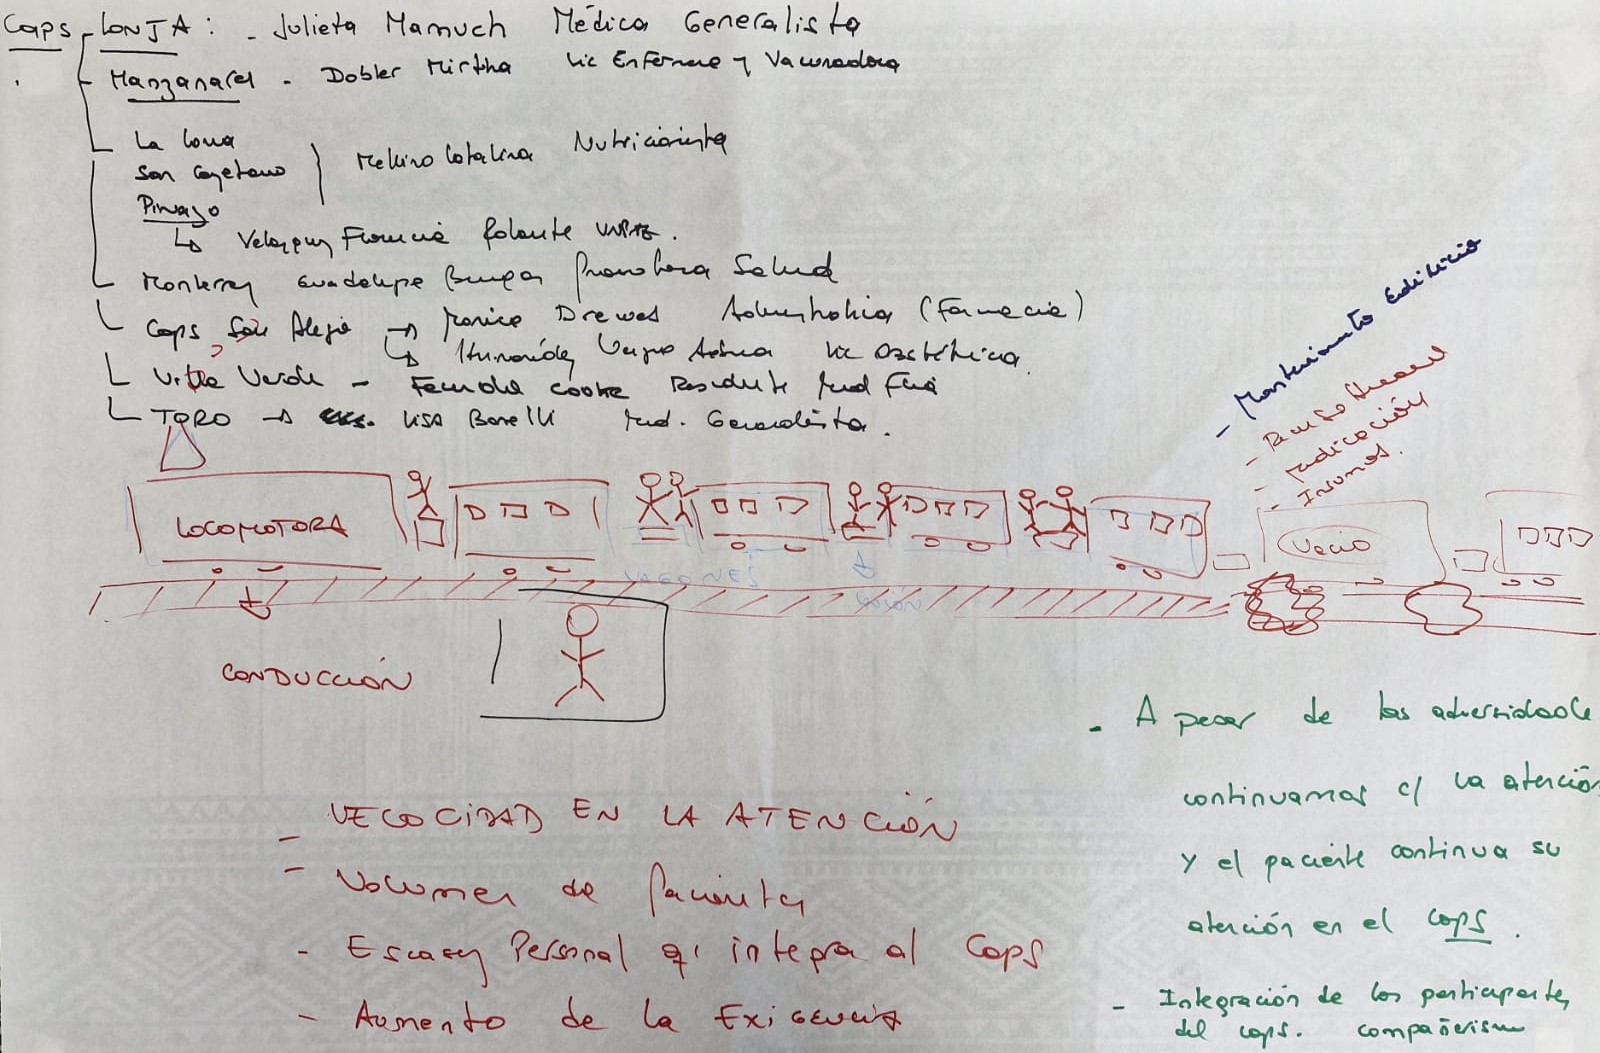 Caps LONJA : - Julieta Mamuch Médica Generalista
- Manzanares - Dobler Mirtha Lic Enferme y Vacunadora
La Loma
San Cayetano
Catalina Nutricionista
Pinazo
↳ Florencia
Monterrey Guadalupe Promotora Salud
Caps San Alejo → Monica Drewes Administrativa (Farmacia)
↳ Lic Obstétrica
Villa Verde - Cooke Residente Med Fam
TORO → Lisa Borelli Med. Generalista.
- Mantenimiento Edilicio
- Recurso Humano
- Medicación
- Insumos.
LOCOMOTORA
Vacio
VAGONES
CONDUCCIÓN
- A pesar de las adversidade
continuamos c/ la atención
y el paciente continua su
atención en el caps.
- Integración de los participantes
del caps. compañerismo
- VELOCIDAD EN LA ATENCIÓN
- Volumen de Pacientes
- Escasez Personal q' integra al Caps
- Aumento de la Exigencia